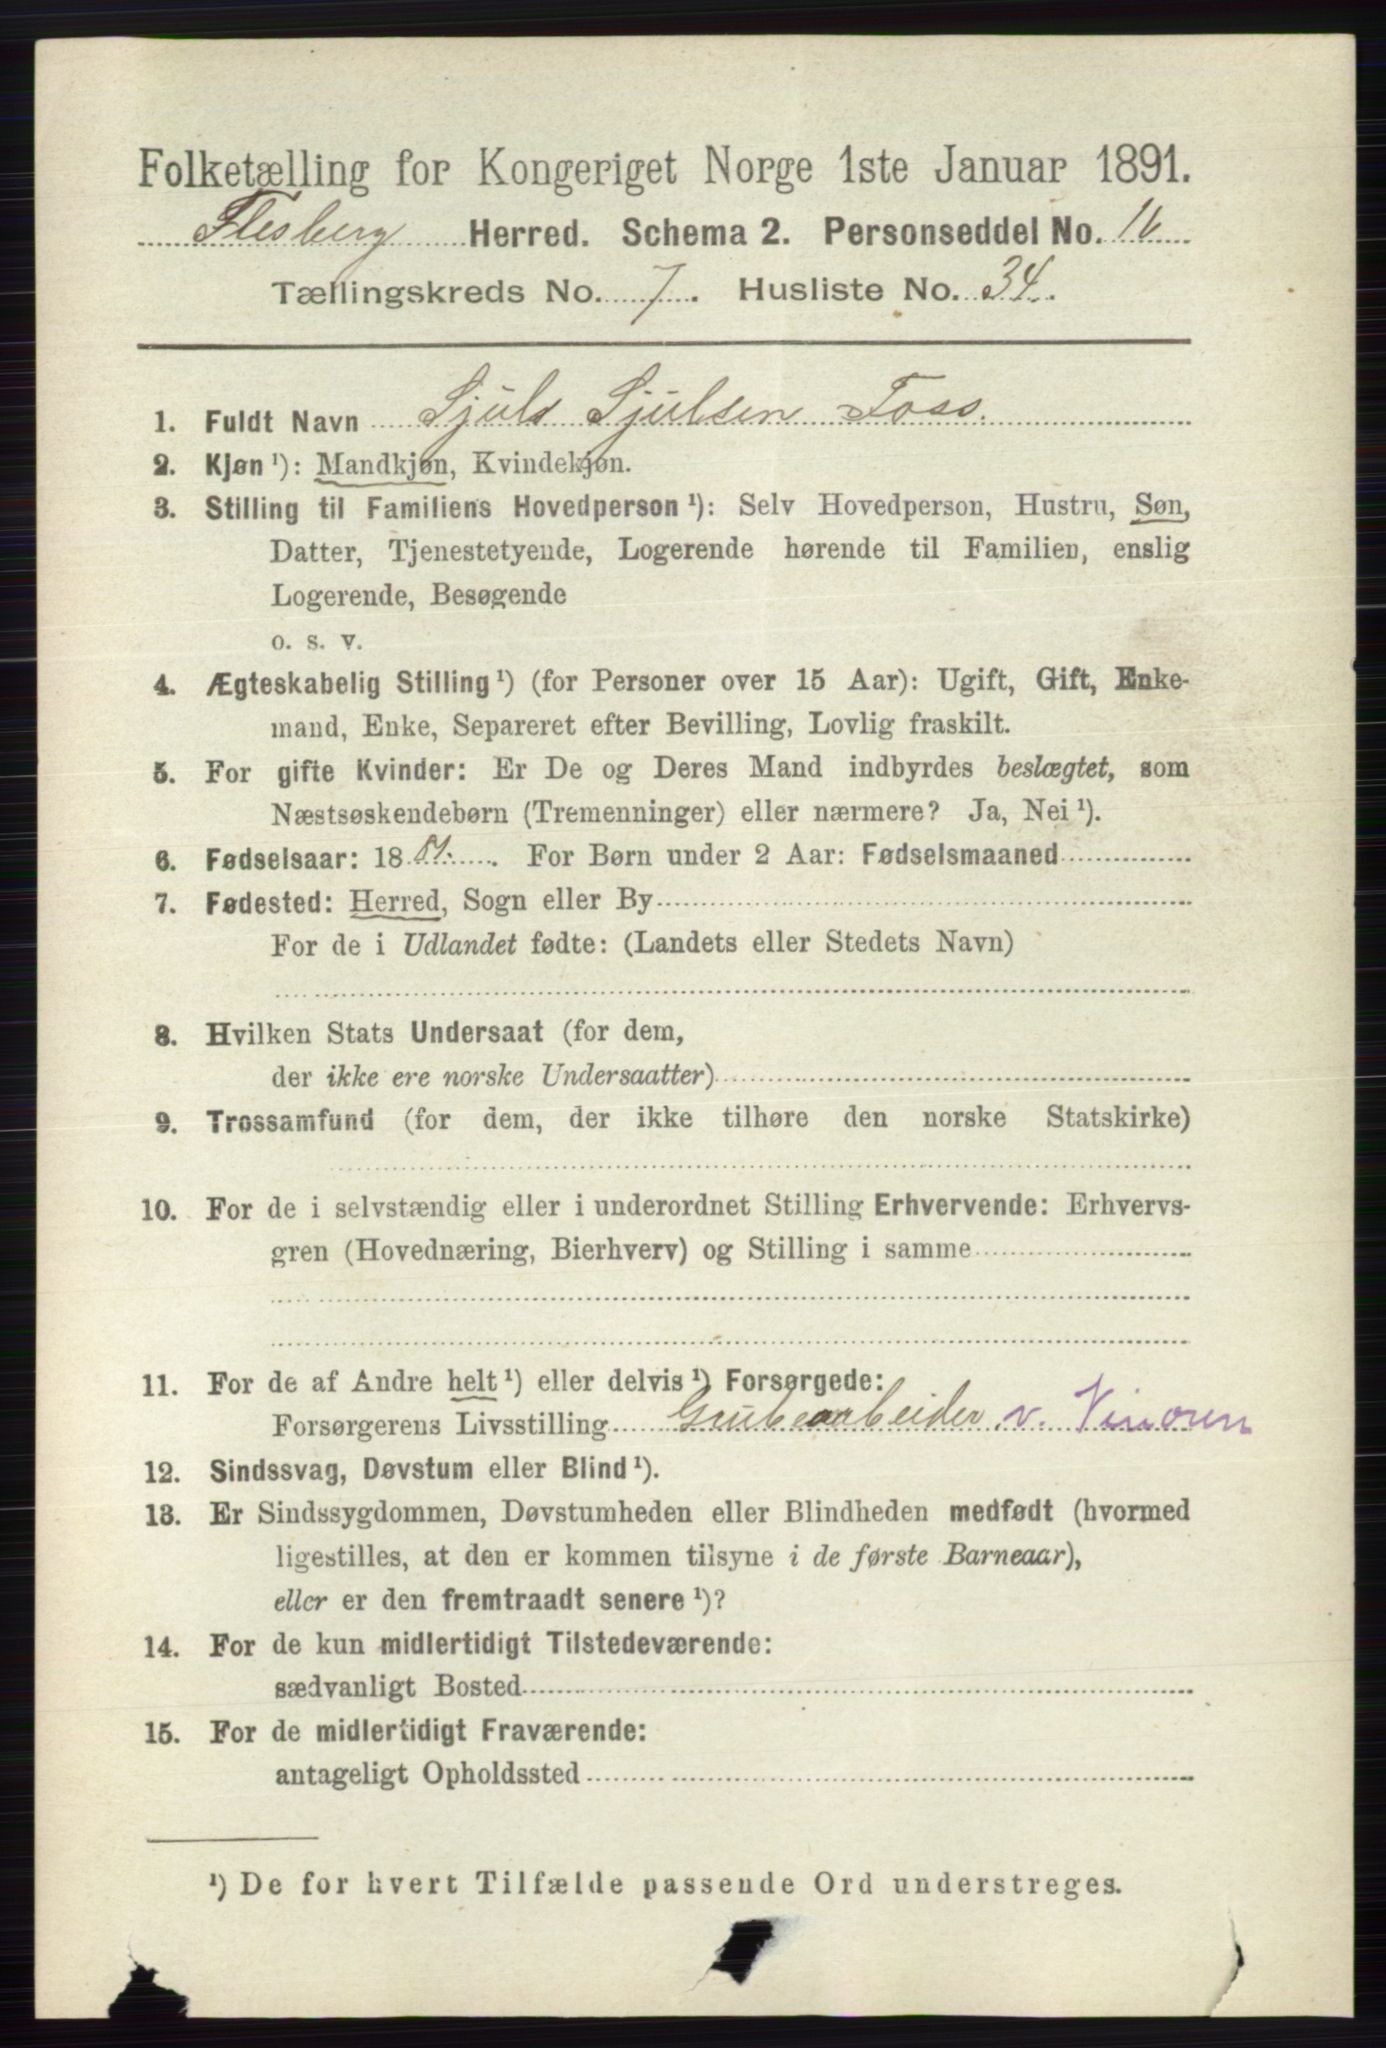 Folketælling for Kongeriget Norge 1ste Januar 1891.
Flesberg Herred. Schema 2. Personseddel No. 16
Tællingskreds No. 7. Husliste No. 34.
1. Fuldt Navn Sjuls Sjulsen Foss.
2. Kjøn ¹): Mandkjøn, Kvindekjøn.
3. Stilling til Familiens Hovedperson ¹): Selv Hovedperson, Hustru, Søn,
Datter, Tjenestetyende, Logerende hørende til Familien, enslig
Logerende, Besøgende
o. s. v.
4. Ægteskabelig Stilling ¹) (for Personer over 15 Aar): Ugift, Gift, Enke-
mand, Enke, Separeret efter Bevilling, Lovlig fraskilt.
5. For gifte Kvinder: Er De og Deres Mand indbyrdes beslægtet, som
Næstsøskendebørn (Tremenninger) eller nærmere? Ja, Nei ¹).
6. Fødselsaar: 1881. For Børn under 2 Aar: Fødselsmaaned
7. Fødested: Herred, Sogn eller By
For de i Udlandet fødte: (Landets eller Stedets Navn)
8. Hvilken Stats Undersaat (for dem,
der ikke ere norske Undersaatter)
9. Trossamfund (for dem, der ikke tilhøre den norske Statskirke)
10. For de i selvstændig eller i underordnet Stilling Erhvervende: Erhvervs-
gren (Hovednæring, Bierhverv) og Stilling i samme
11. For de af Andre helt ¹) eller delvis ¹) Forsørgede:
Forsørgerens Livsstilling Grubearbeider v. Vinoren
12. Sindssvag, Døvstum eller Blind ¹).
13. Er Sindssygdommen, Døvstumheden eller Blindheden medfødt (hvormed
ligestilles, at den er kommen tilsyne i de første Barneaar),
eller er den fremtraadt senere ¹)?
14. For de kun midlertidigt Tilstedeværende:
sædvanligt Bosted
15. For de midlertidigt Fraværende:
antageligt Opholdssted
¹) De for hvert Tilfælde passende Ord understreges.